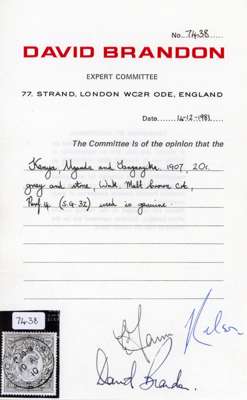 No. 7438
DAVID BRANDON
EXPERT COMMITTEE
77, STRAND, LONDON WC2R ODE, ENGLAND
Date 14-12-1983
The Committee is of the opinion that the
Kenya, Uganda and Tanganyika 1907, 20r.
grey and stone, Wmk. Mult Crown CA,
(S.G. 32) used is genuine.
7438
Nelson
David Brandon.